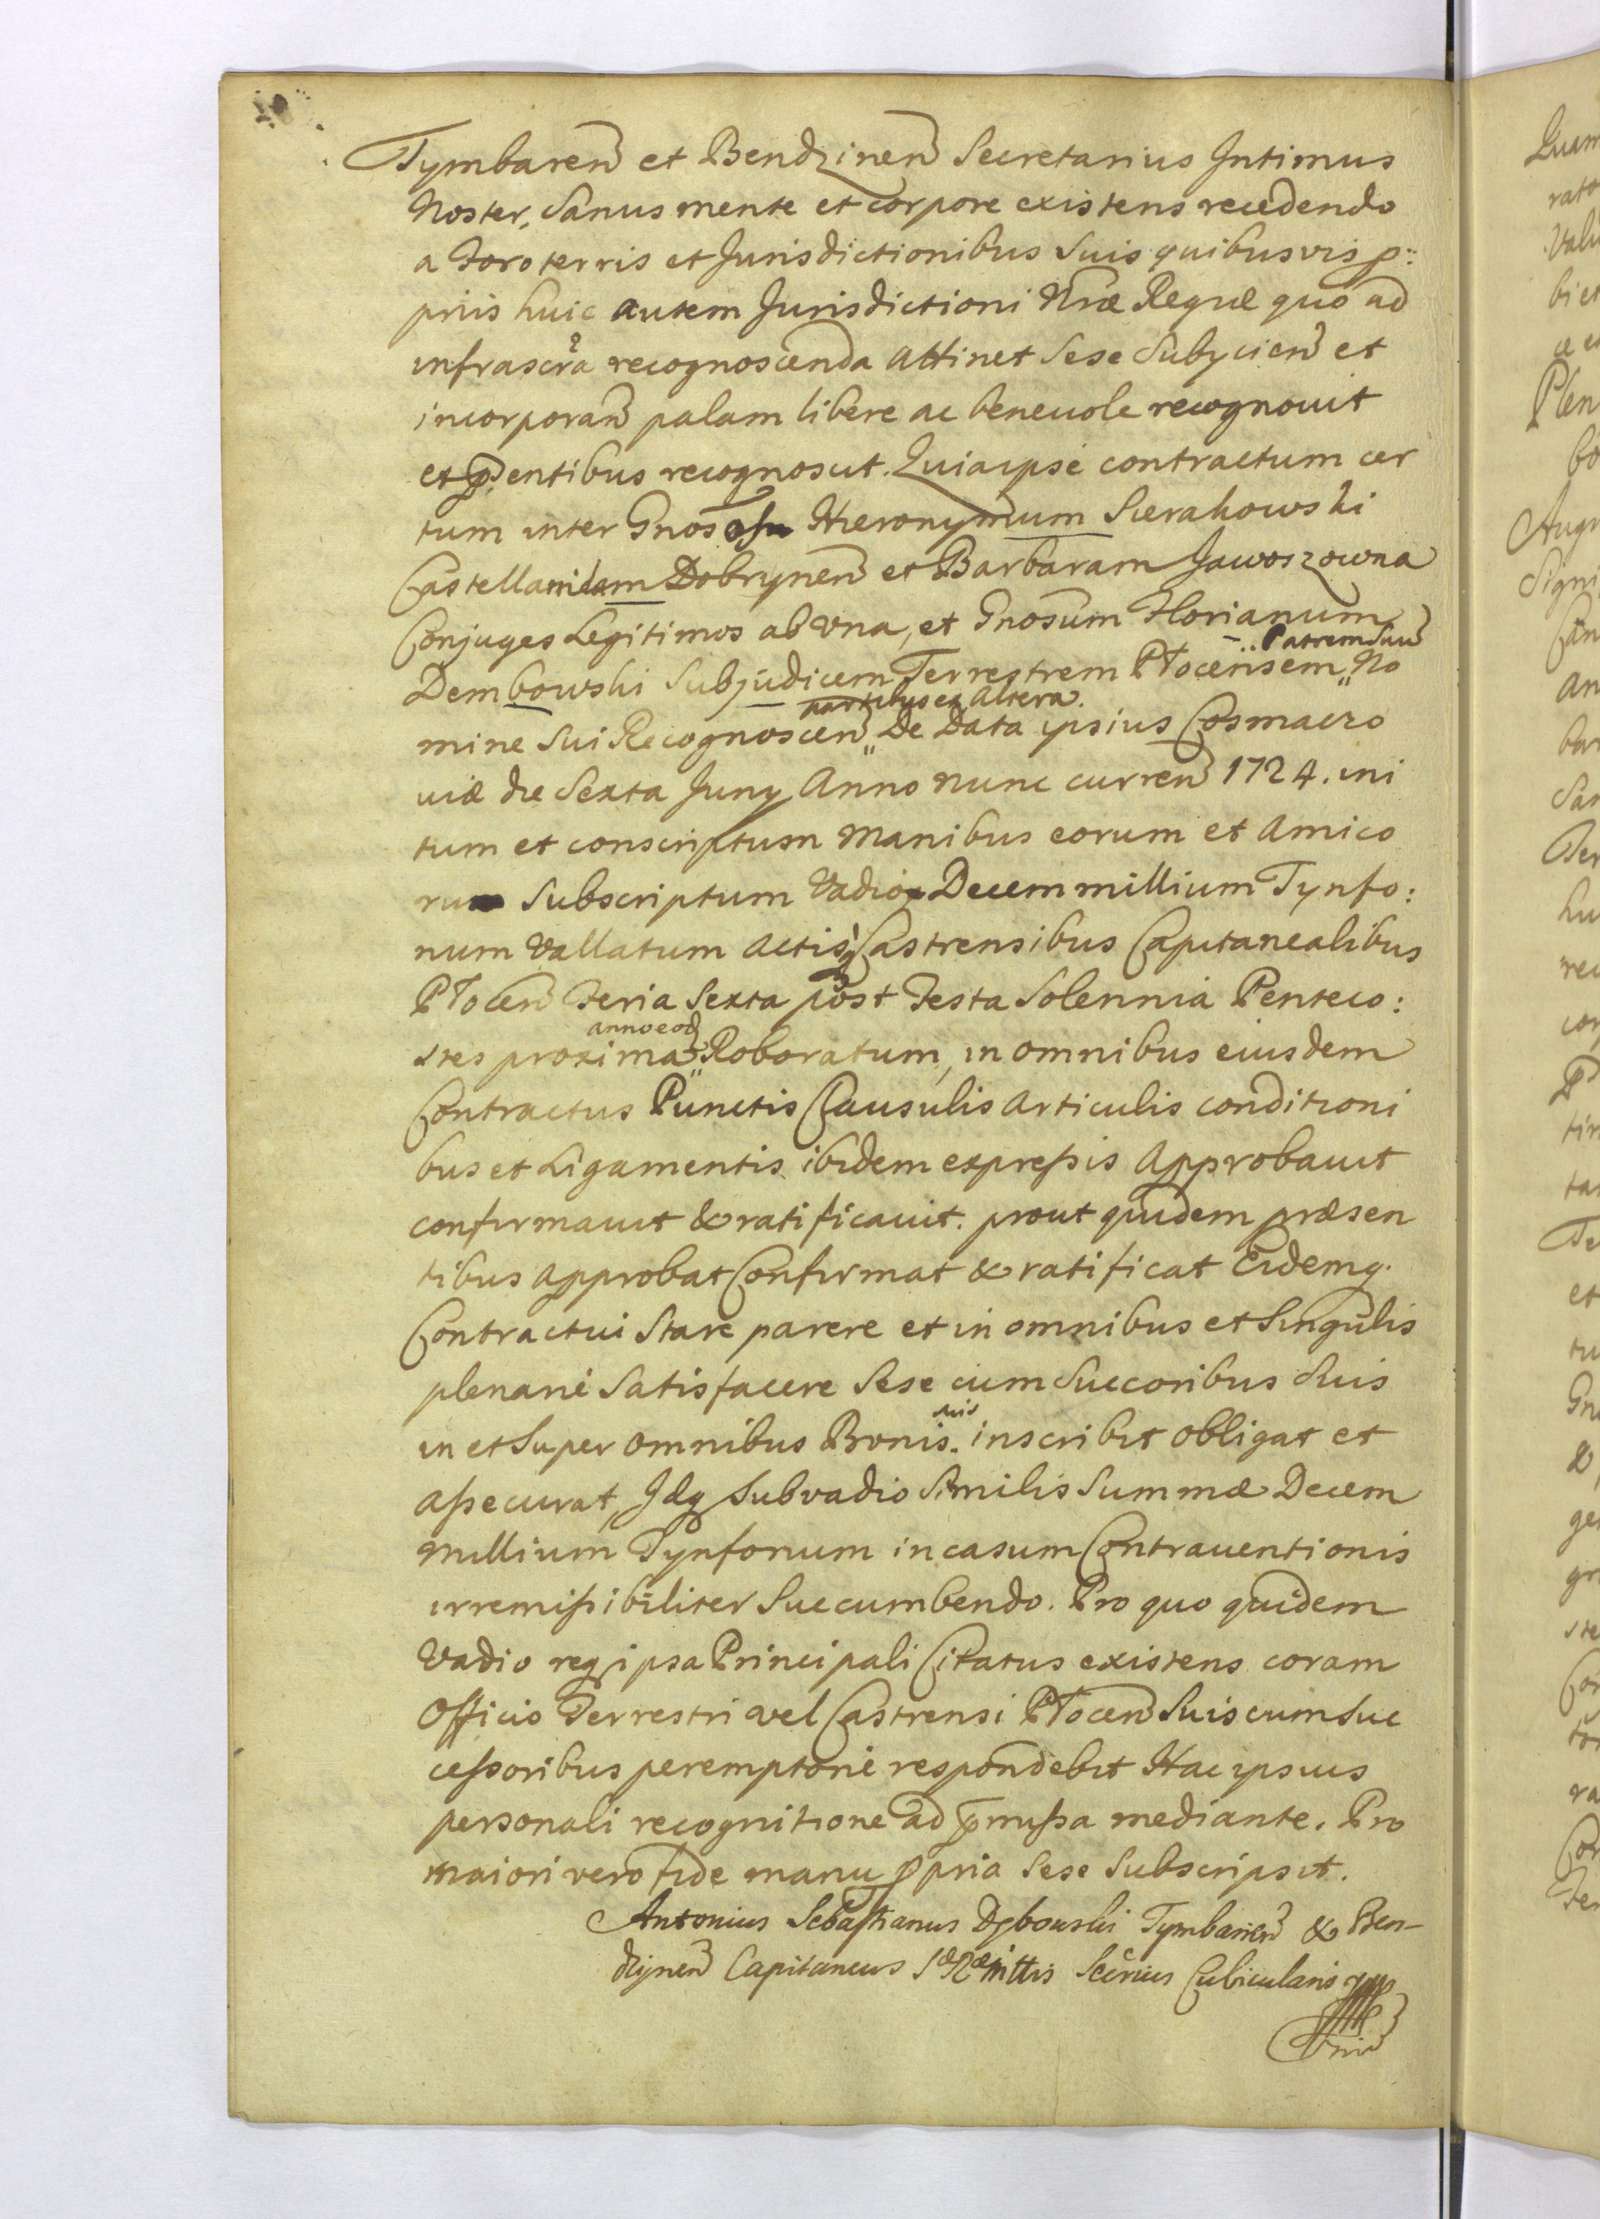 Tymbaren et Bendzinen Secretarius Intimus
Noster, Sanus mente et corpore existens recedendo
a Foro terris et Jurisdictionibus Suis quibusvis p:
priis huic autem Jurisdictioni Nræ Regiæ quo ad
infrascra recognoscenda attinet Sese Subycien et
incorporan palam libere ac beneuole recognouit
et pntibus recognoscit. Quia ipse contractum cer
tum inter Gnosos Hieronymum Sierakowski
Castellanidam Dobrynen et Barbaram Jawoszowna
Conjuges Legitimos ab Vna, et Gnosum Florianum
Patrem Suu
Dembowski Subjudicem Terrestrem Plocensem, No
partibus ex Altera.
mine Sui Recognoscen De Data ipsius Cosmaczo
uiæ die Sexta Juny Anno nunc curren 1724. ini
tum et conscriptum Manibus eorum et Amico
rum Subscriptum Vadio Decem millium Tynfo:
num Vallatum Actisq Castrensibus Capitanealibus
Plocen Feria Sexta post Festa Solennia Penteco:
anno eod
stes proxima Roboratum, in omnibus eiusdem
Contractus Punctis Clausulis Articulis conditioni
bus et Ligamentis ibidem expressis Approbauit
confirmauit & ratificauit. prout quidem præsen
tibus Approbat Confirmat & ratificat Eidemq.
Contractui Stare parere et in omnibus et Singulis
plenarie Satisfacere Sese cum Succoribus Suis
suis
in et Super omnibus Bonis. inscribit obligat et
assecurat, Idq Sub vadio Similis Summæ Decem
Millium Tynforum in casum Contrauentionis
irremissibiliter Succumbendo. Pro quo quidem
Vadio req ipsa Principali Citatus existens coram
Officio Terrestri vel Castrensi Plocen Suis cum Suc
cessoribus peremptorie respondebit Hac ipsius
personali recognitione ad pmissa mediante. Pro
maiori vero fide manu ppria Sese Subscripsit.
Antonius Sebastianus Dębowski Tymbarien & Ben-
dzynen Capitaneus Scrius Cubicularis